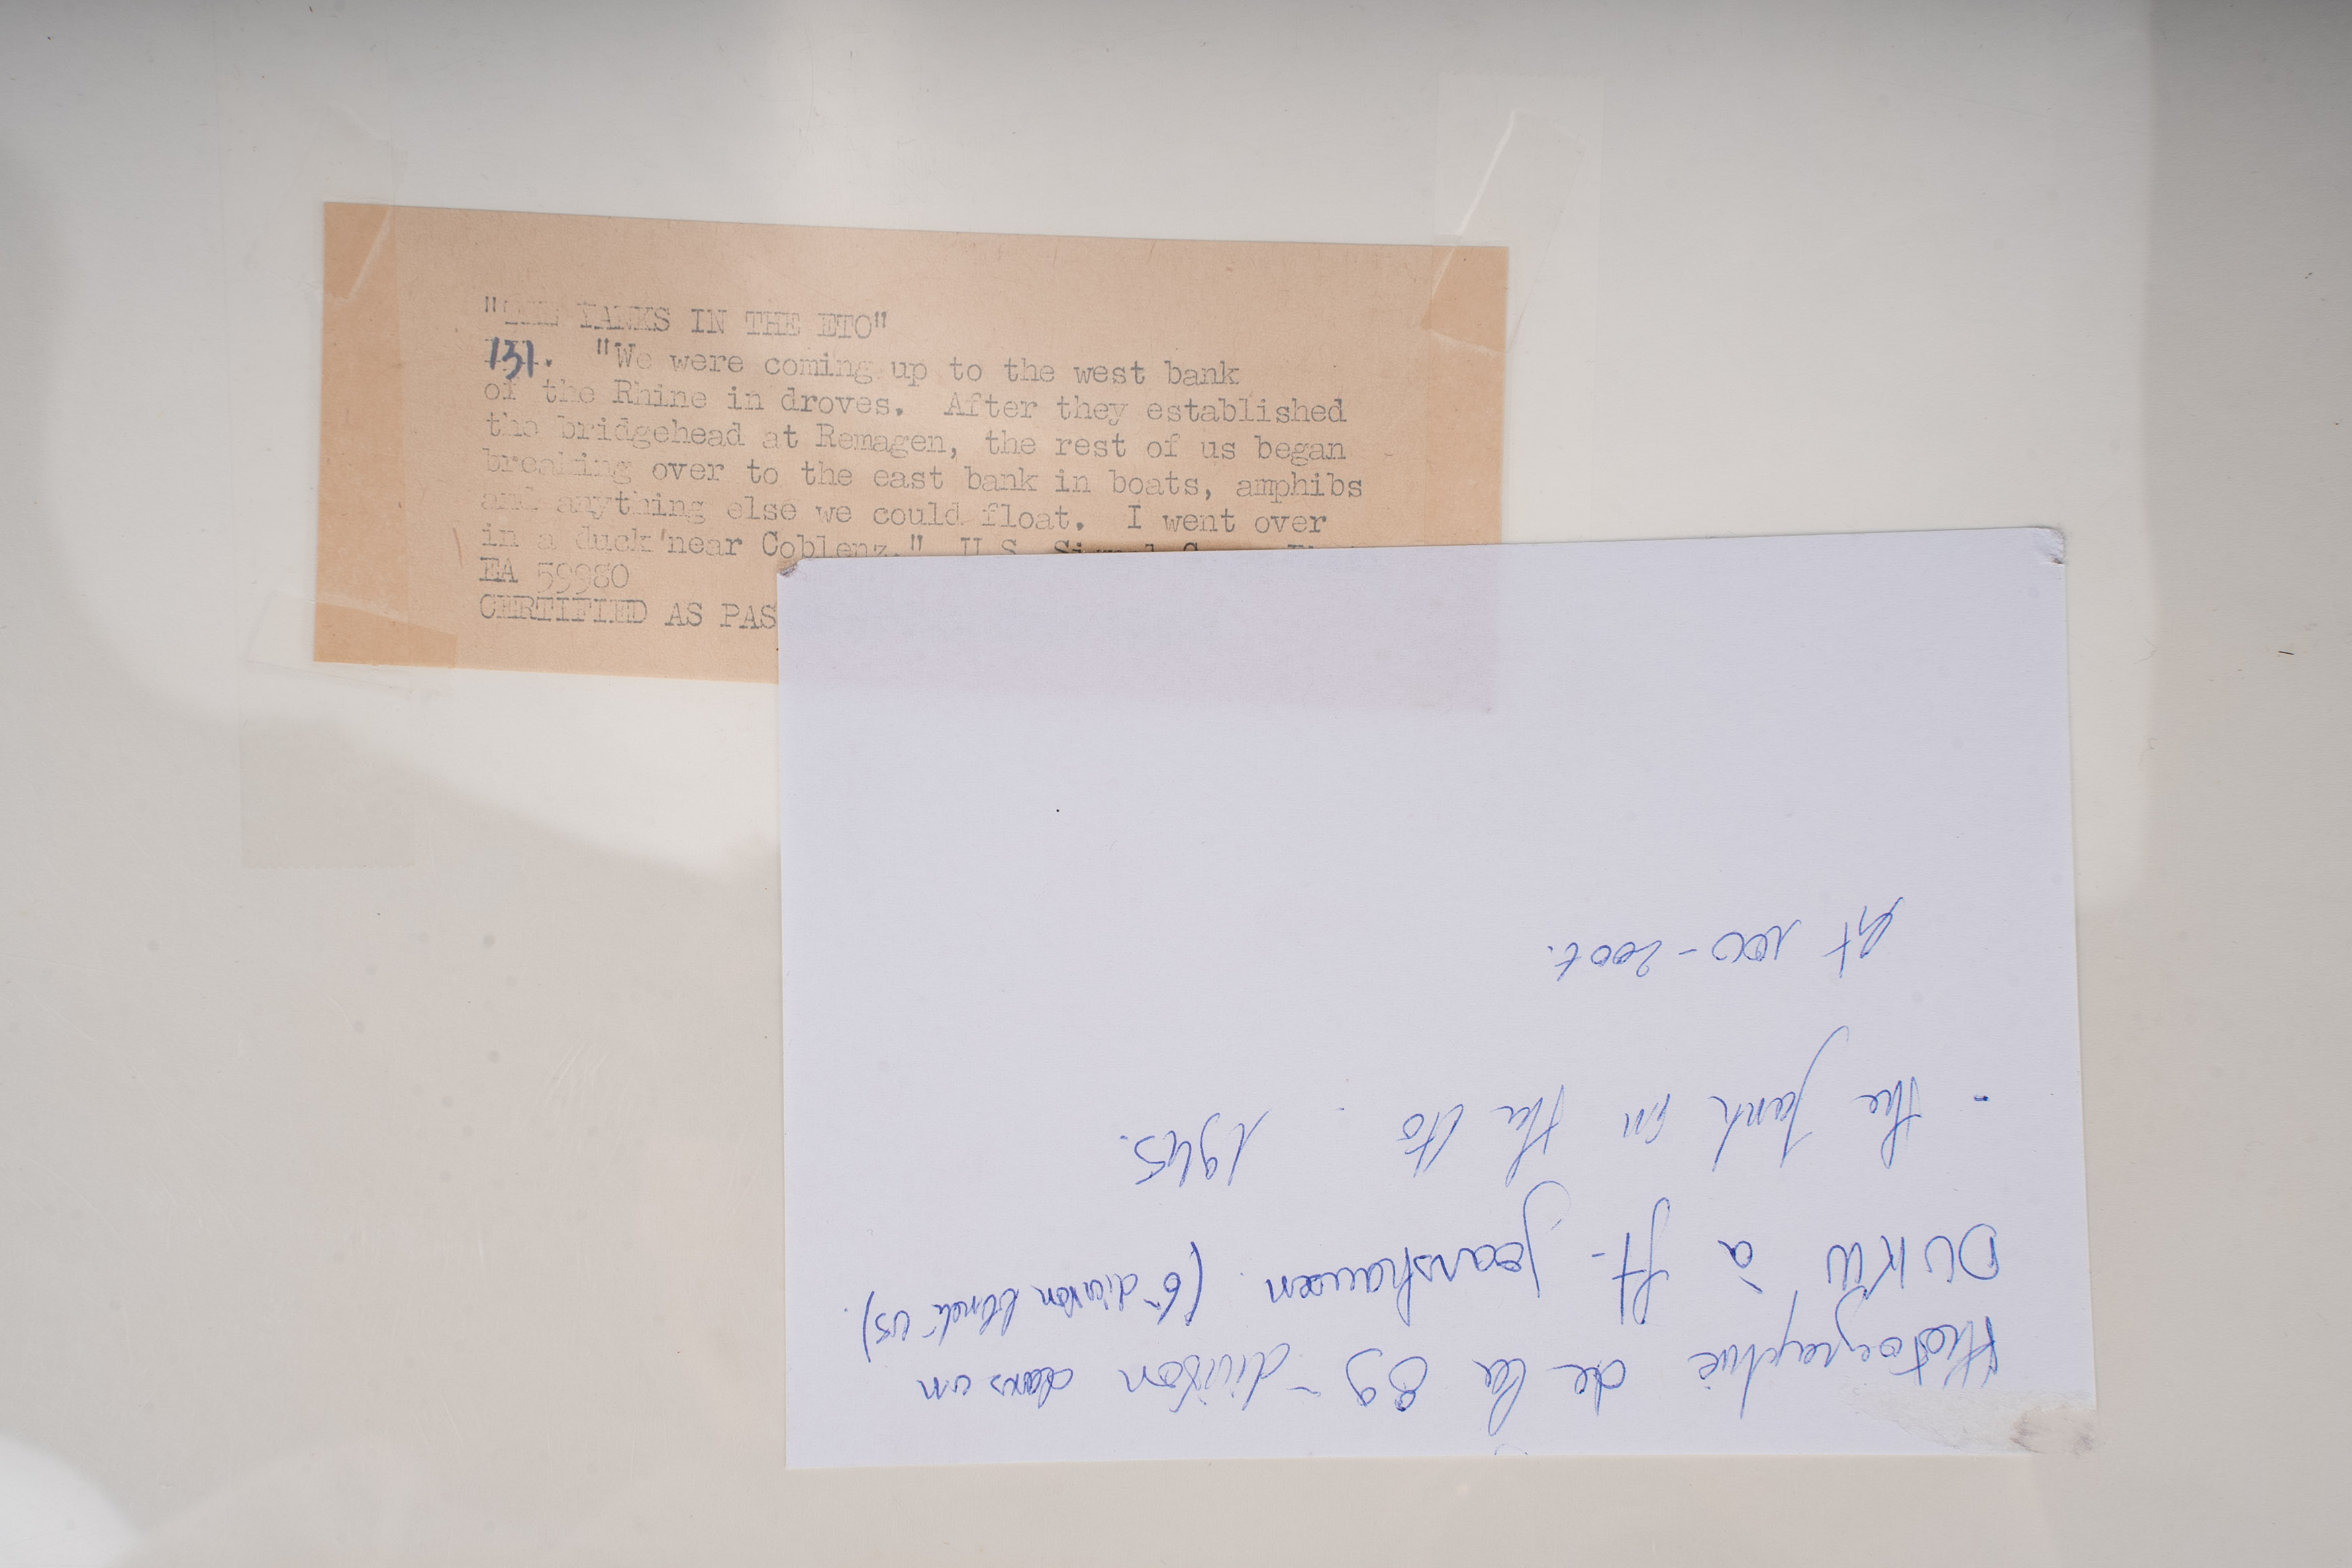 "THE YANKS IN THE ETO"
131. "We were coming up to the west bank
of the Rhine in droves. After they established
the bridgehead at Remagen, the rest of us began
breaking over to the east bank in boats, amphibs
and anything else we could float. I went over
in a duck near Coblenz." U.S. Signal
EA 59980
CERTIFIED AS PAS
Photographie de la 89e division dans un
DUKW à St. (6e division blindé US).
- the Yank in the Eto 1945.